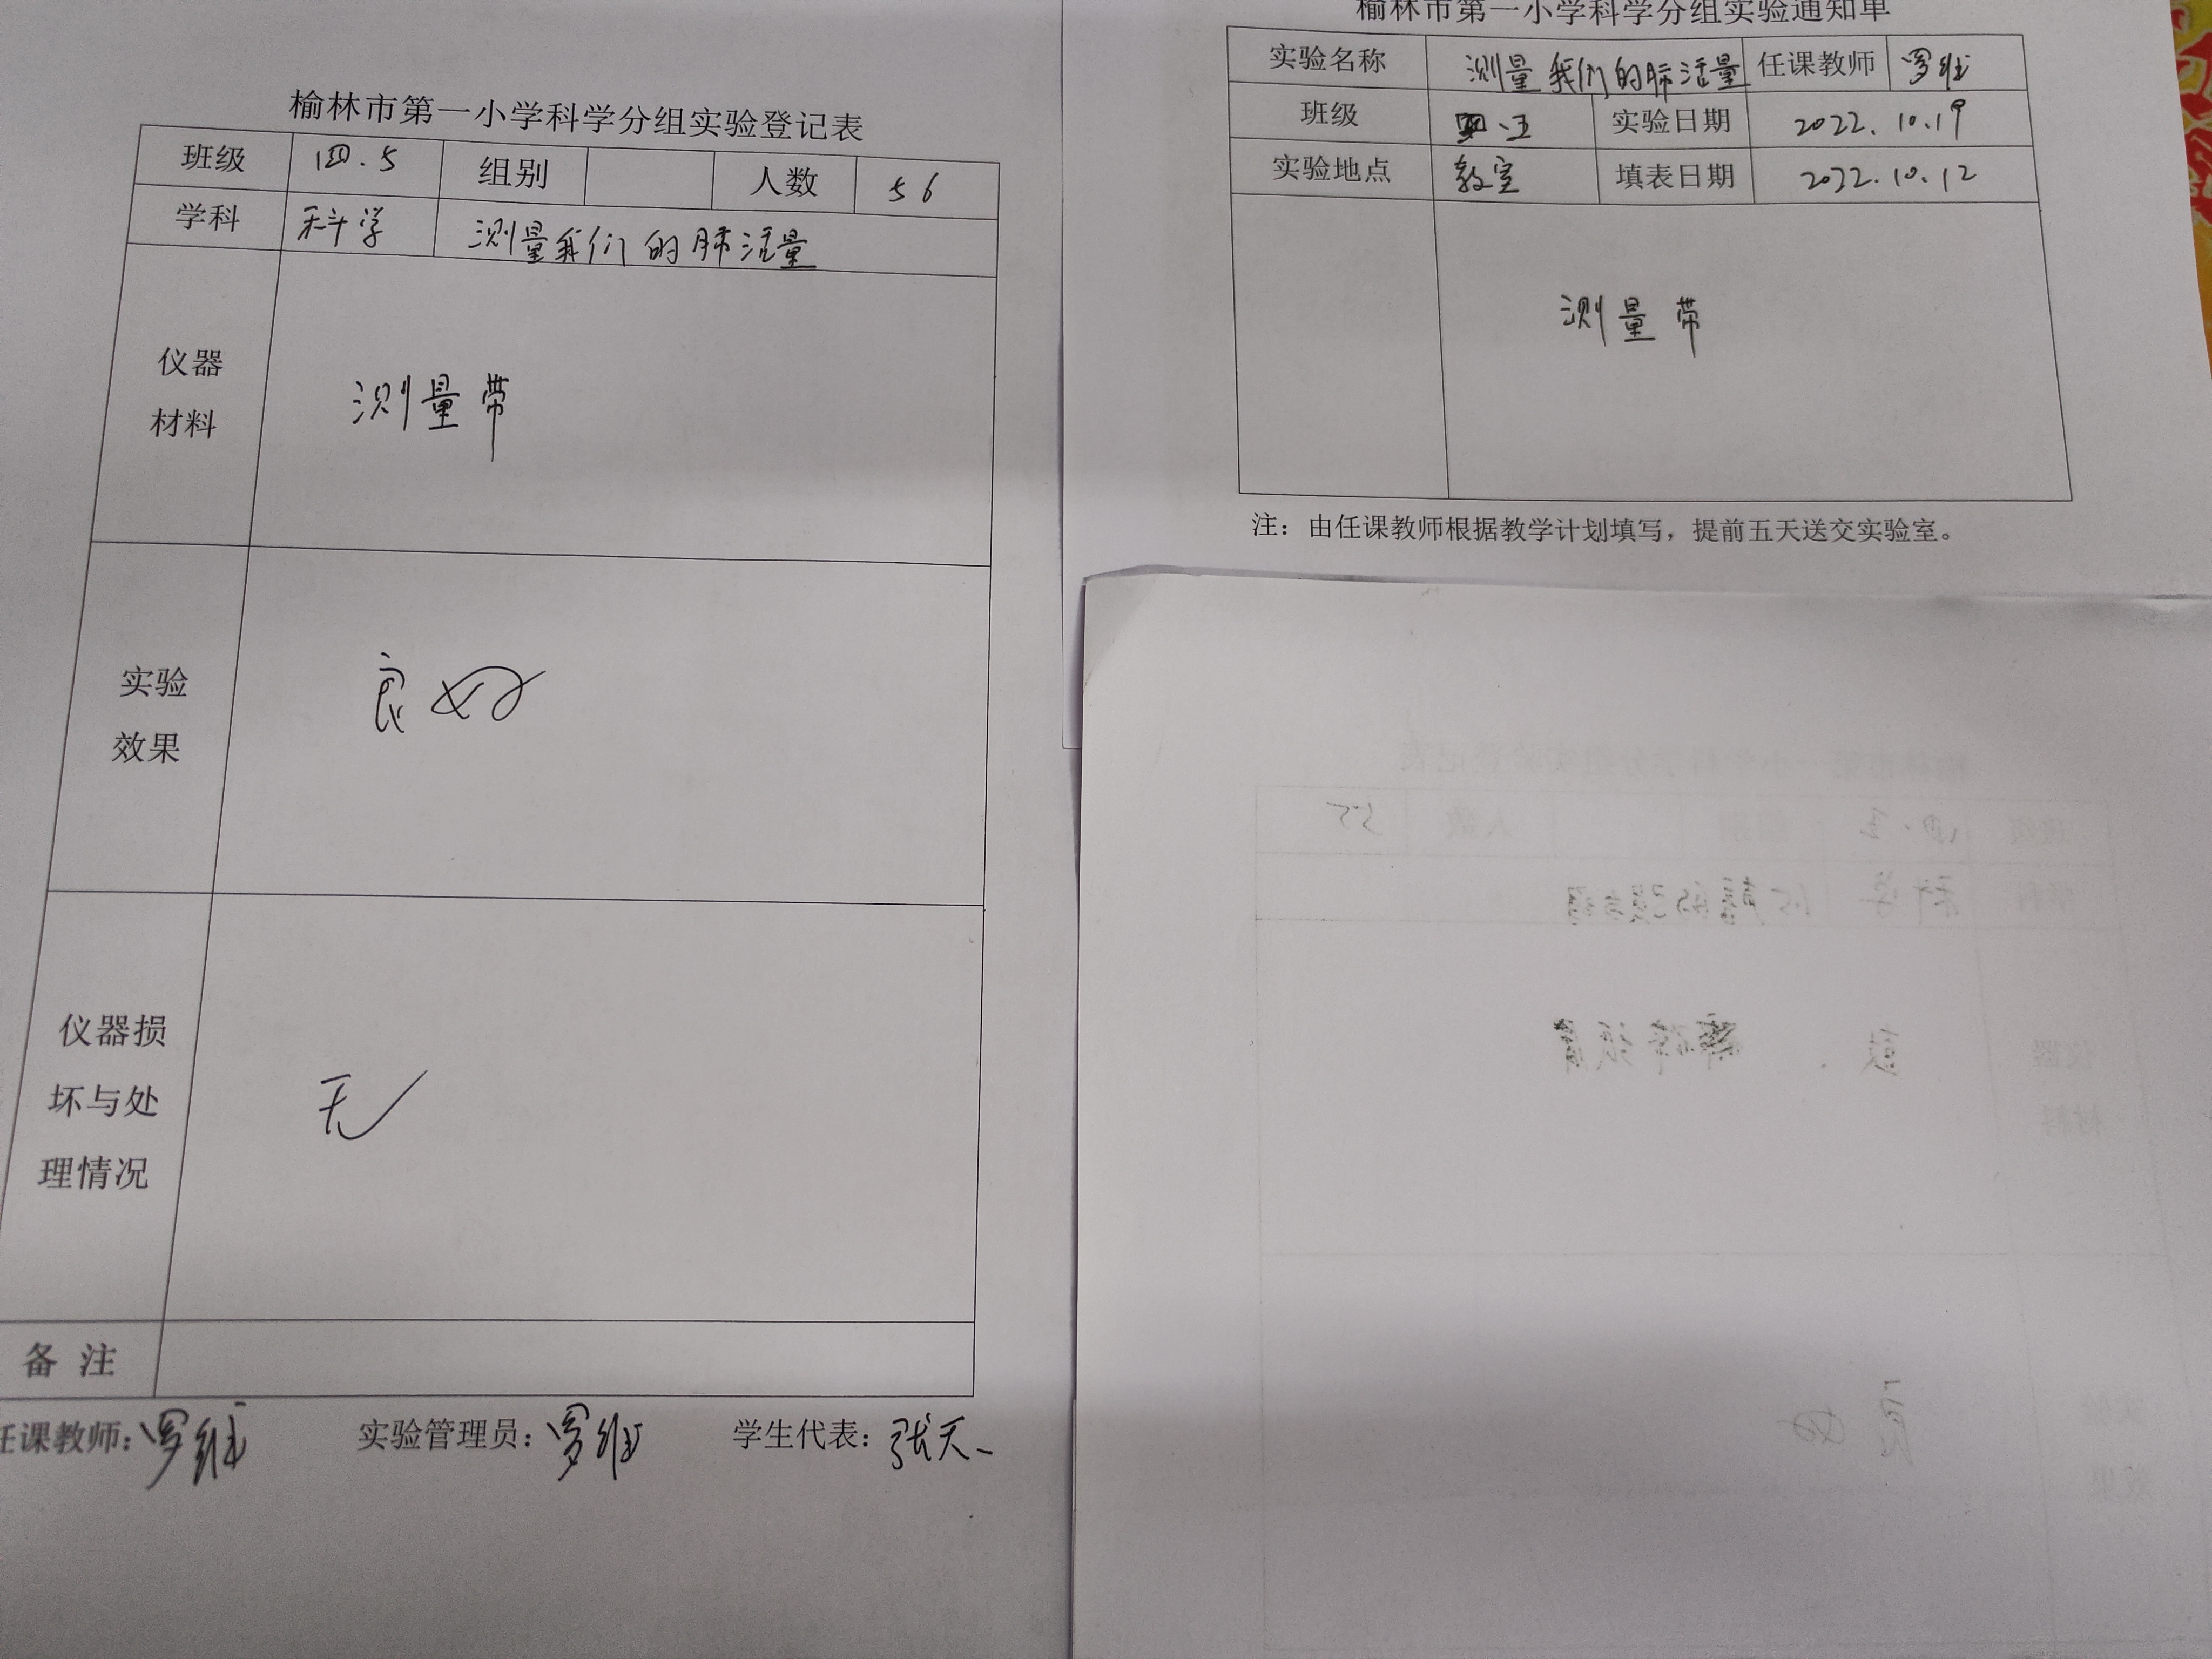 榆林市第一小学科学分组实验登记表
班级 四.5 组别 人数 56
学科 科学 测量我们的肺活量
仪器
材料
测量带
实验
效果
良好
仪器损
坏与处
理情况
无
备 注
任课教师：罗维 实验管理员：罗维 学生代表：张天一
榆林市第一小学科学分组实验通知单
实验名称 测量我们的肺活量 任课教师 罗维
班级 四.五 实验日期 2022.10.19
实验地点 教室 填表日期 2022.10.12
测量带
注：由任课教师根据教学计划填写，提前五天送交实验室。